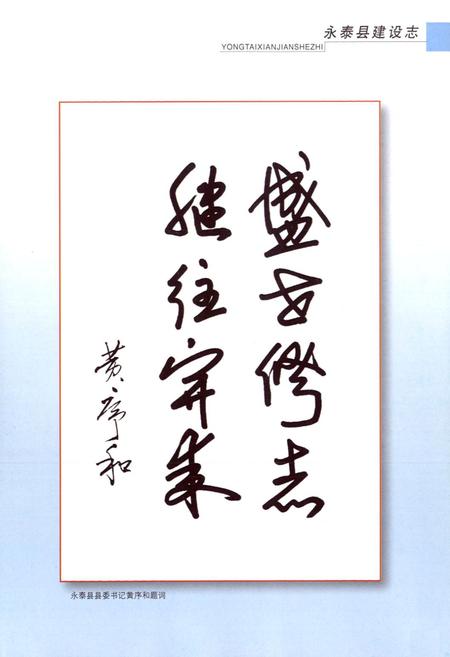 永泰县建设志
YONGTAIXIANJIANSHEZHI
盛世修志
继往开来
黄序和
永泰县县委书记黄序和题词